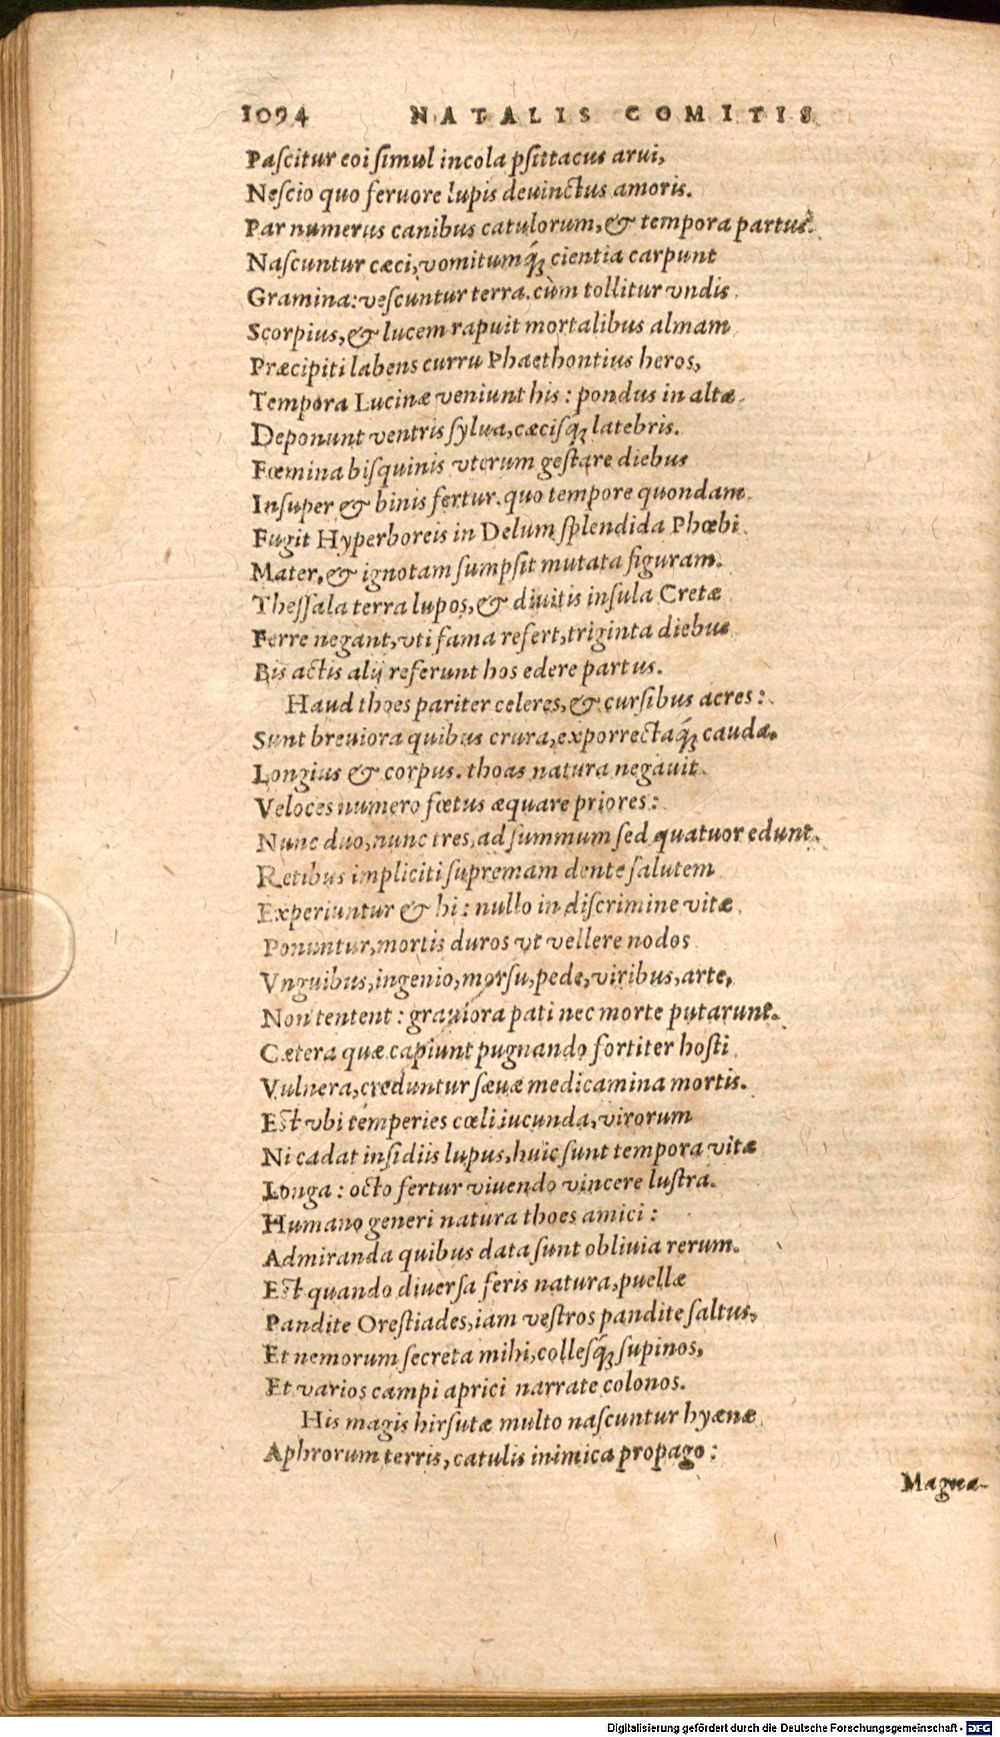 1094 NATALIS COMITIS
Paſcitur eoi ſimul incola pſittacus arui,
Neſcio quo feruore lupis deuinctus amoris.
Par numerus canibus catulorum, & tempora partus.
Naſcuntur cæci, vomitumq́; cientia carpunt
Gramina: veſcuntur terra. cùm tollitur vndis
Scorpius, & lucem rapuit mortalibus almam
Præcipiti labens curru Phaethontius heros,
Tempora Lucinæ veniunt his: pondus in alta
Deponunt ventris ſylua, cæciſq́; latebris.
Fœmina biſquinis vterum geſtare diebus
Inſuper & binis fertur. quo tempore quondam
Fugit Hyperboreis in Delum ſplendida Phœbi
Mater, & ignotam ſumpſit mutata figuram.
Theſſala terra lupos, & diuitis inſula Cretæ
Ferre negant, vti fama refert, triginta diebus
Bis actis alij referunt hos edere partus.
Haud thoes pariter celeres, & curſibus acres:
Sunt breuiora quibus crura, exporrectaq́; cauda.
Longius & corpus. thoas natura negauit
Veloces numero fœtus æquare priores:
Nunc duo, nunc tres, ad ſummum ſed quatuor edunt.
Retibus impliciti ſupremam dente ſalutem
Experiuntur & hi: nullo in diſcrimine vitæ
Ponuntur, mortis duros vt vellere nodos
Vnguibus, ingenio, morſu, pede, viribus, arte,
Non tentent: grauiora pati nec morte putarunt.
Cætera quæ capiunt pugnando fortiter hoſti
Vulnera, creduntur ſæuæ medicamina mortis.
Eſt vbi temperies cœli iucunda, virorum
Ni cadat inſidiis lupus, huic ſunt tempora vitæ
Longa: octo fertur viuendo vincere luſtra.
Humano generi natura thoes amici:
Admiranda quibus data ſunt obliuia rerum.
Eſt quando diuerſa feris natura, puellæ
Pandite Oreſtiades, iam veſtros pandite ſaltus,
Et nemorum ſecreta mihi, colleſq́; ſupinos,
Et varios campi aprici narrate colonos.
His magis hirſutæ multo naſcuntur hyænæ
Aphrorum terris, catulis inimica propago:
Magna-
Digitalisierung gefördert durch die Deutsche Forschungsgemeinschaft - DFG